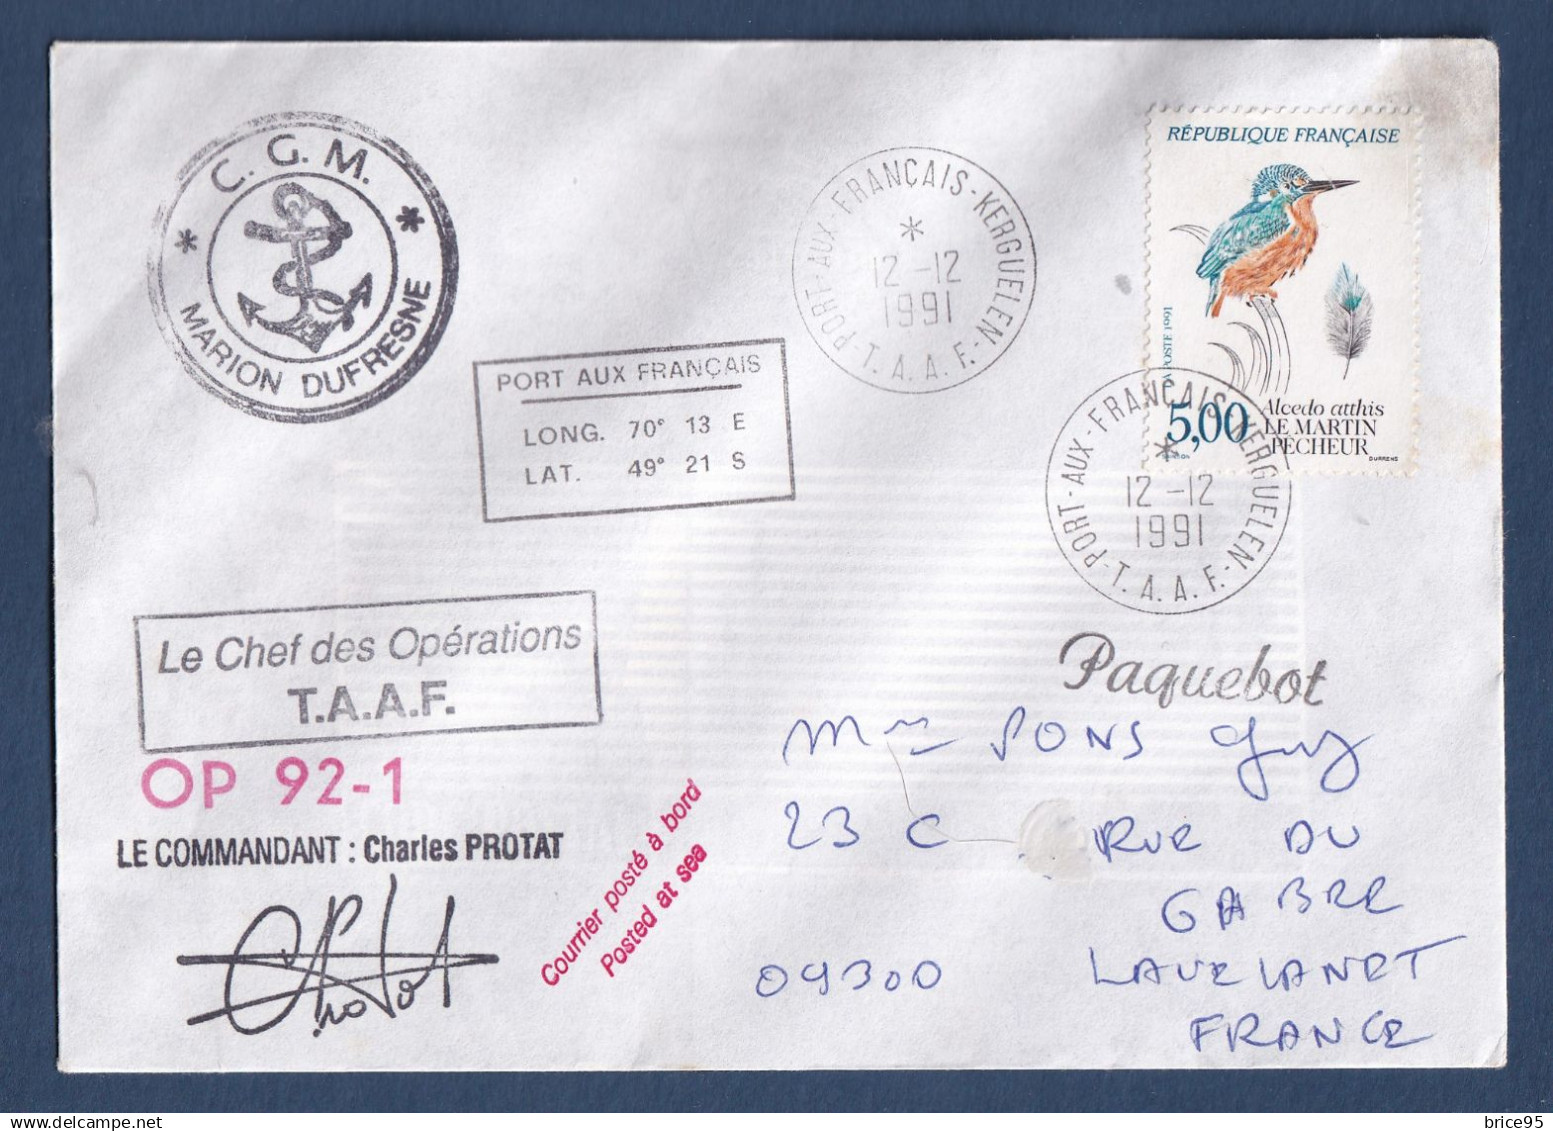 C. G. M.
* MARION DUFRESNE *
PORT-AUX-FRANÇAIS-KERGUELEN
*
12-12
1991
-T. A. A. F.-
RÉPUBLIQUE FRANÇAISE
LA POSTE 1991
5,00
Alcedo atthis
LE MARTIN
PÊCHEUR
DURRENS
PORT AUX FRANÇAIS
LONG. 70° 13 E
LAT. 49° 21 S
PORT-AUX-FRANÇAIS-KERGUELEN
*
12-12
1991
-T. A. A. F.-
Le Chef des Opérations
T.A.A.F.
Paquebot
OP 92-1
LE COMMANDANT : Charles PROTAT
Protat
Courrier posté à bord
Posted at sea
Mme PONS Guy
23 C RUE DU
GABRE
09300 LAVELANET
FRANCE
brice95